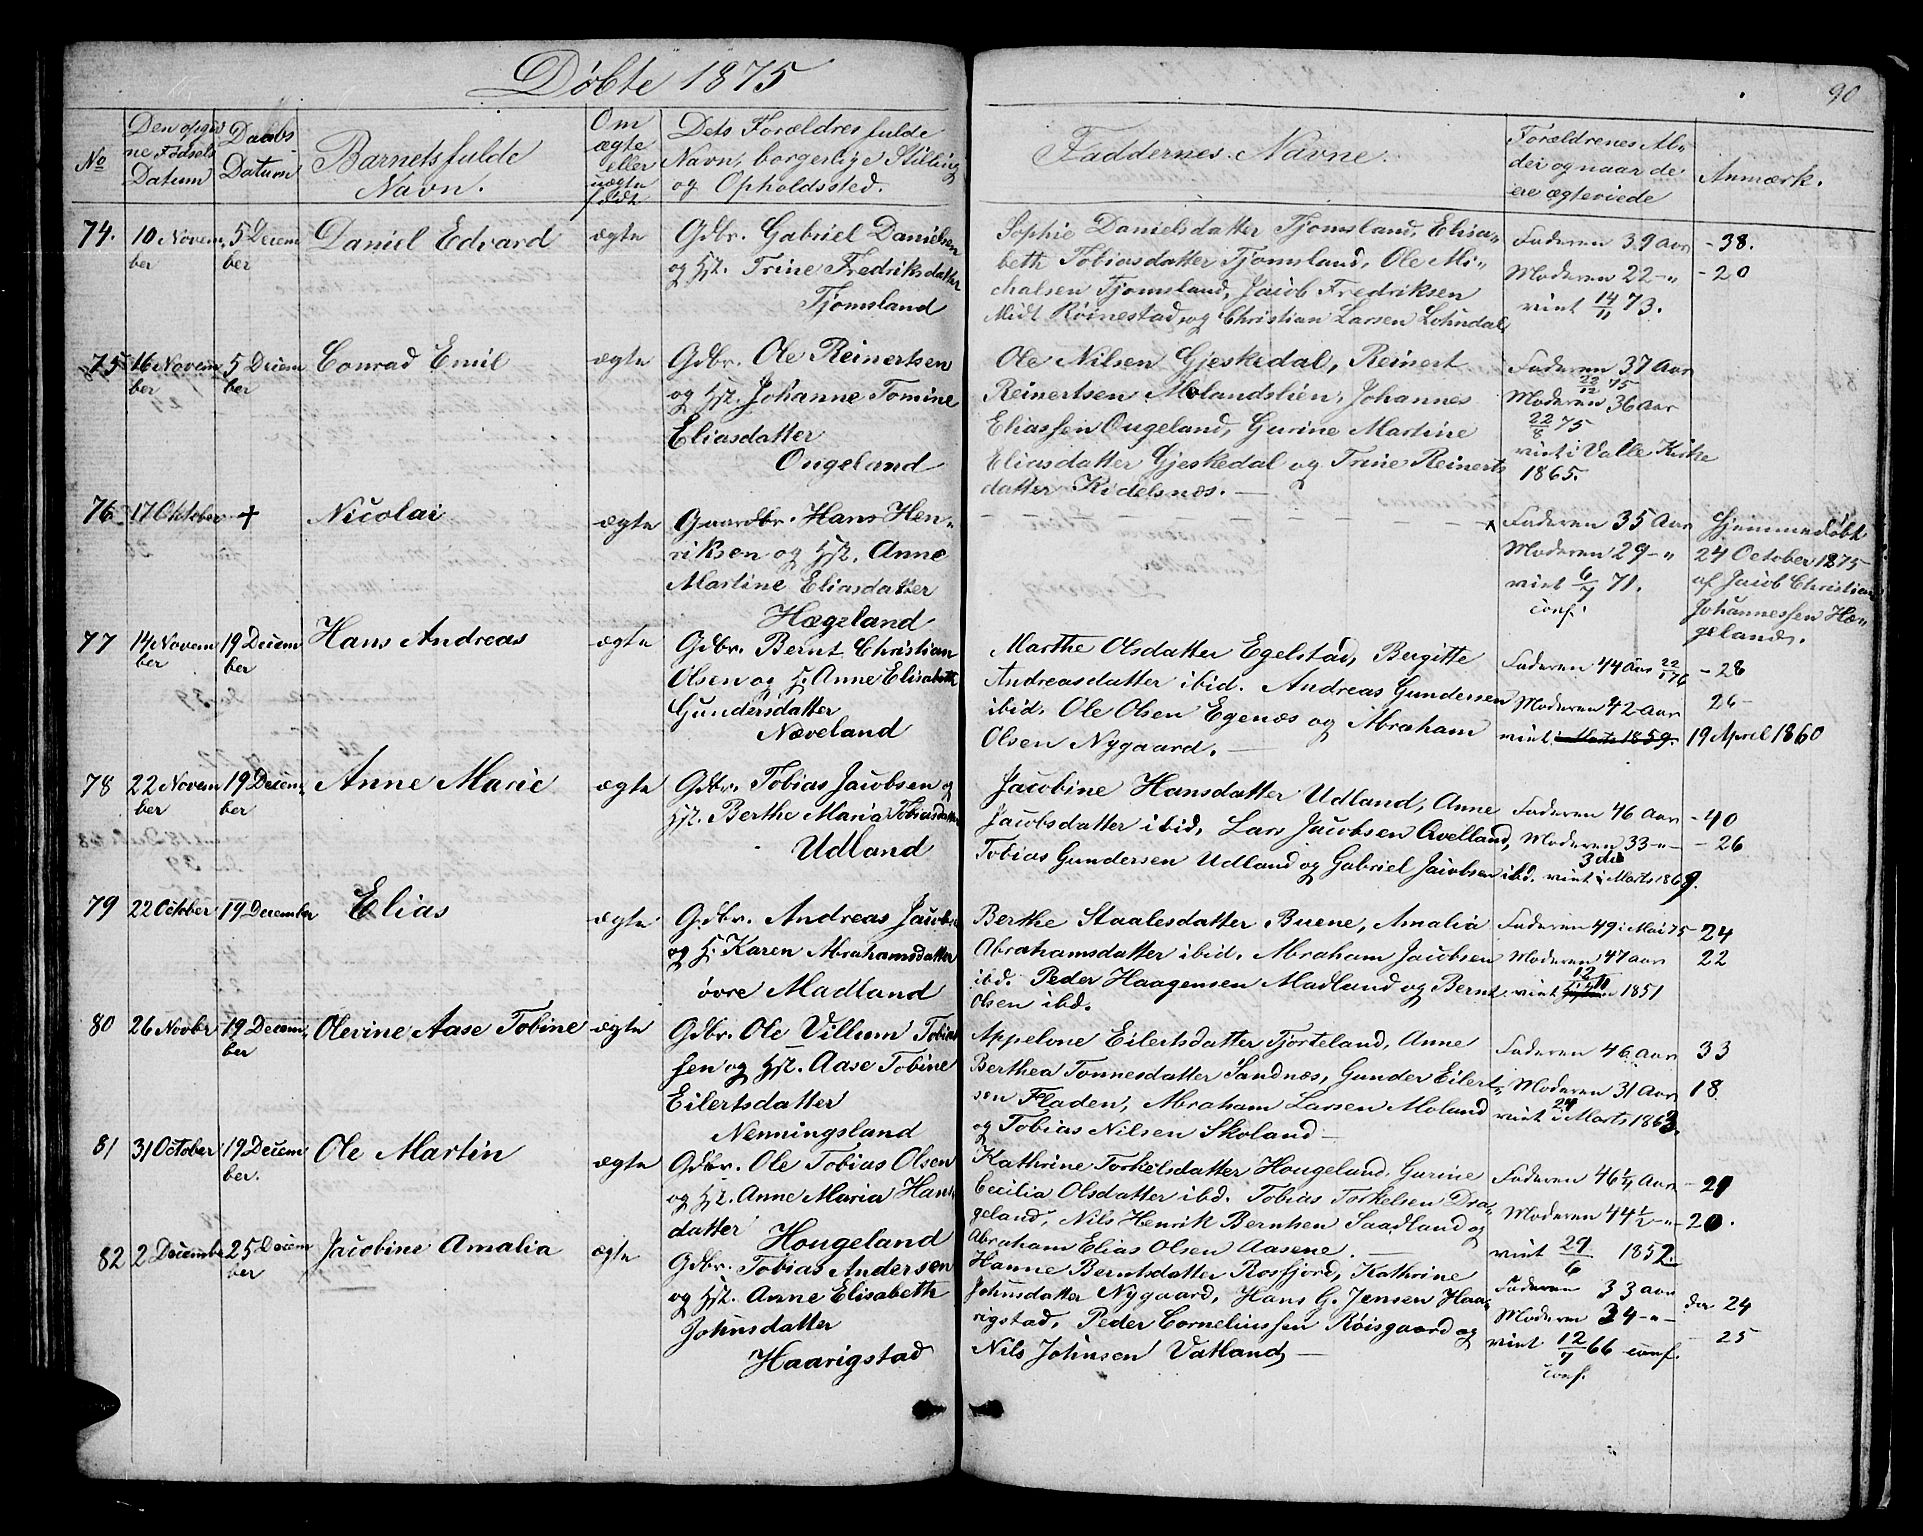 Döbte 1875
90
No
Den opgiv
ne Fødsels
Datum
Daabs
Datum
Barnets fulde
Navn.
Om
ægte
eller
uægte
født
Dets Forældres fulde
Navn, borgerlige Stilling
og Opholdssted.
Faddernes Navne.
Forældrenes Al-
der og naar de
ere ægteviede
Anmærk.
74.
10 Novem-
ber
5 Decem
ber
Daniel Edvard
ægte
Gdbr. Gabriel Danielsen
og Hst. Trine Fredriksdatter
Tjomsland
Sophie Danielsdatter Tjomsland, Elisa-
beth Tobiasdatter Tjomsland, Ole Mi-
chalsen Tjomsland, Jacob Fredriksen
Midt Röinestad og Christian Larsen Lohndal
Faderen 39 Aar
Moderen 22 - "
viet 14/11 73.
- 38.
- 20
75
16 Novem
ber
5 Decem
ber
Conrad Emil
ægte
Gdbr. Ole Reinertsen
og Hst. Johanne Tomine
Eliasdatter
Ougeland
Ole Nilsen Gjeskedal, Reinert
Reinertsen Molandslien, Johannes
Eliassen Ougeland, Gurine Martine
Eliasdatter Gjeskedal og Trine Reinerts
datter Kidelsnæs. -
Faderen 37 Aar
22/12 75
Moderen 36 Aar
22/8 75
viet i Valle Kirke
1865.
76
17 Oktober
+
Nicolai
ægte
Gaardbr. Hans Hen-
riksen og Hst. Anne
Martine Eliasdatter
Hægeland
Faderen 35 Aar
Moderen 29 - "
viet 6/7 71.
conf.
Hjemmedöbt
24 October 1875
af Jacob Christian
Johannessen Hæ-
geland.
77
14 Novem
ber
19 Decem
ber
Hans Andreas
ægte
Gdbr. Bernt Christian
Olsen og H. Anne Elisabeth
Gundersdatter
Næveland
Marthe Olsdatter Egelstad, Bergitte
Andreasdatter ibid. Andreas Gundersen
ibid. Ole Olsen Egenæs og Abraham
Olsen Nygaard. -
Faderen 44 Aar 22/1 76
Moderen 42 Aar
viet i Marts 1859.
- 28
26 -
19 April 1860
78
22 Novem
ber
19 Decem-
ber
Anne Marie
ægte
Gdbr. Tobias Jacobsen og
Hst. Berthe Maria Tobiasdatter
Udland
Jacobine Hansdatter Udland, Anne
Jacobsdatter ibid. Lars Jacobsen Qvelland,
Tobias Gundersen Udland og Gabriel Jacobsen ibd.
Faderen 46 Aar
Moderen 33 - " -
3die
viet i Marts 1869.
- 40
- 26
79
22 October
19 December
Elias
ægte
Gdbr. Andreas Jacobsen
og H. Karen Abrahamsdatter
övre Madland
Berthe Staalesdatter Buene, Amalia
Abrahamsdatter ibid. Abraham Jacobsen
ibd. Peder Haagensen Madland og Bernt
Olsen ibd.
Faderen 49 i Mai 75
Moderen 47 aar
viet 1851
- 24
22
80
26 Novbr
19 Decem-
ber
Olevine Aase Tobine
ægte
Gdbr. Ole Villum Tobias
sen og Hst. Aase Tobine
Eilertsdatter
Nenningsland
Appelone Eilertsdatter Tjorteland, Anne
Berthea Tonnesdatter Sandnæs, Gunder Eilert-
sen Fladen, Abraham Larsen Moland
og Tobias Nilsen Skoland -
Faderen 46 Aar
Moderen 31 Aar
24
viet i Marts 1863.
33
18
81
31 October
19 Decem
ber.
Ole Martin
ægte
Gdbr. Ole Tobias Olsen
og Hst. Anne Maria Hans
datter
Hougeland
Kathrine Torkelsdatter Hougeland, Gurine
Cecilia Olsdatter ibd. Tobias Torkelsen Dra-
geland, Nils Henrik Berntsen Saadland og
Abraham Elias Olsen Aasene. -
Faderen 46 1/4 Aar
Moderen 44 1/2 - " -
viet 29/6 1852.
- 21
20.
82
2 December
25 Decem
ber
Jacobine Amalia
ægte
Gdbr. Tobias Andersen
og Hst. Anne Elisabeth
Johnsdatter
Haarigstad
Hanne Berntsdatter Rosfjord, Kathrine
Johnsdatter Nygaard, Hans G. Jensen Haa-
rigstad, Peder Corneliussen Röisgaard og
Nils Johnsen Vatland, -
Faderen 33 aar
Moderen 34 - " -
viet 12/7 66 conf.
conf.
24
- 25